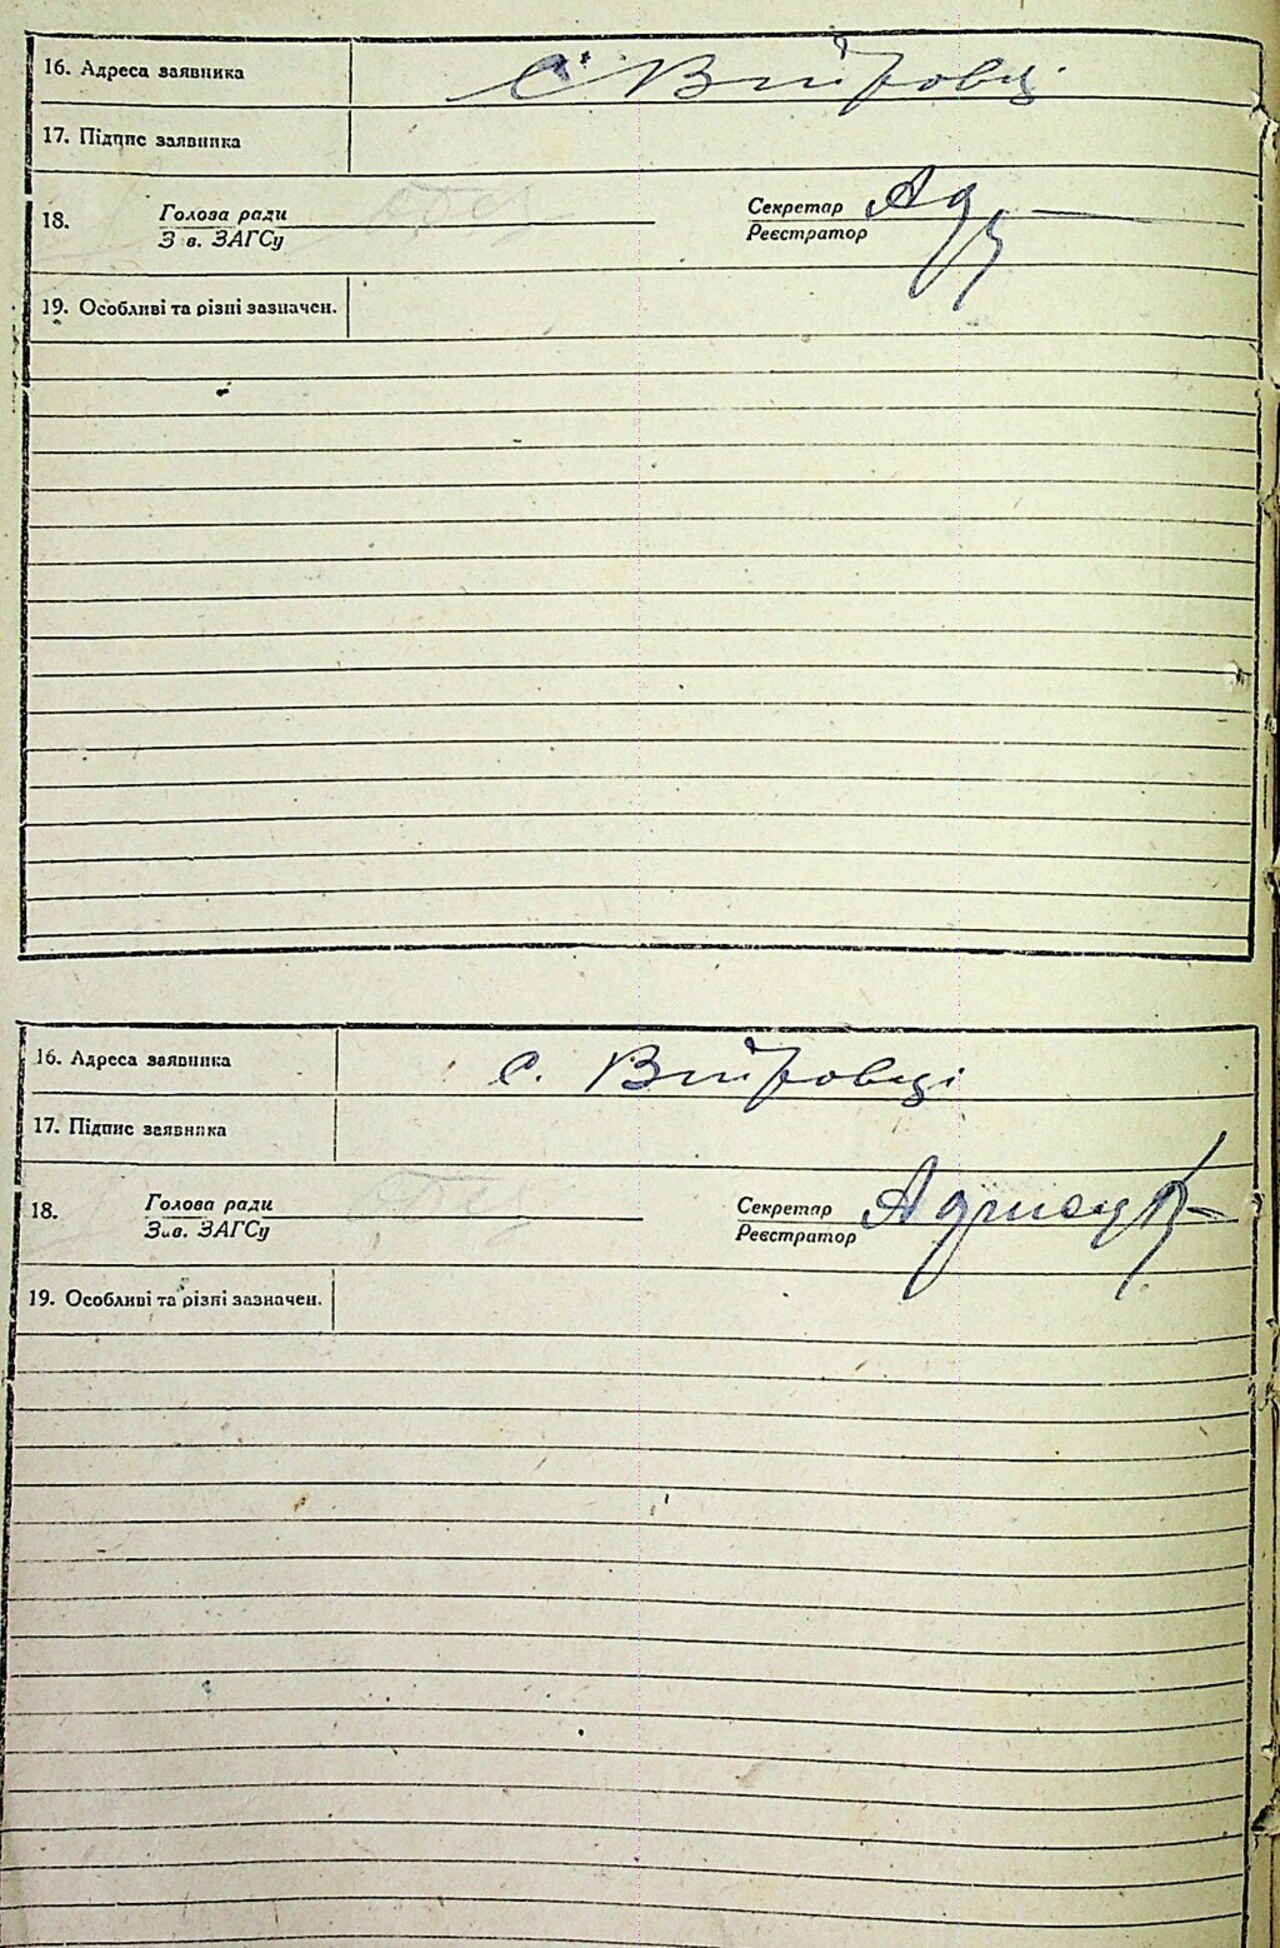 16. Адреса заявника с. Вітровці
17. Підпис заявника
18. Голова ради Секретар
Зав. ЗАГСу Реєстратор
19. Особливі та різні зазначен.
16. Адреса заявника с. Вітровці
17. Підпис заявника
18. Голова ради Секретар
Зав. ЗАГСу Реєстратор
19. Особливі та різні зазначен.